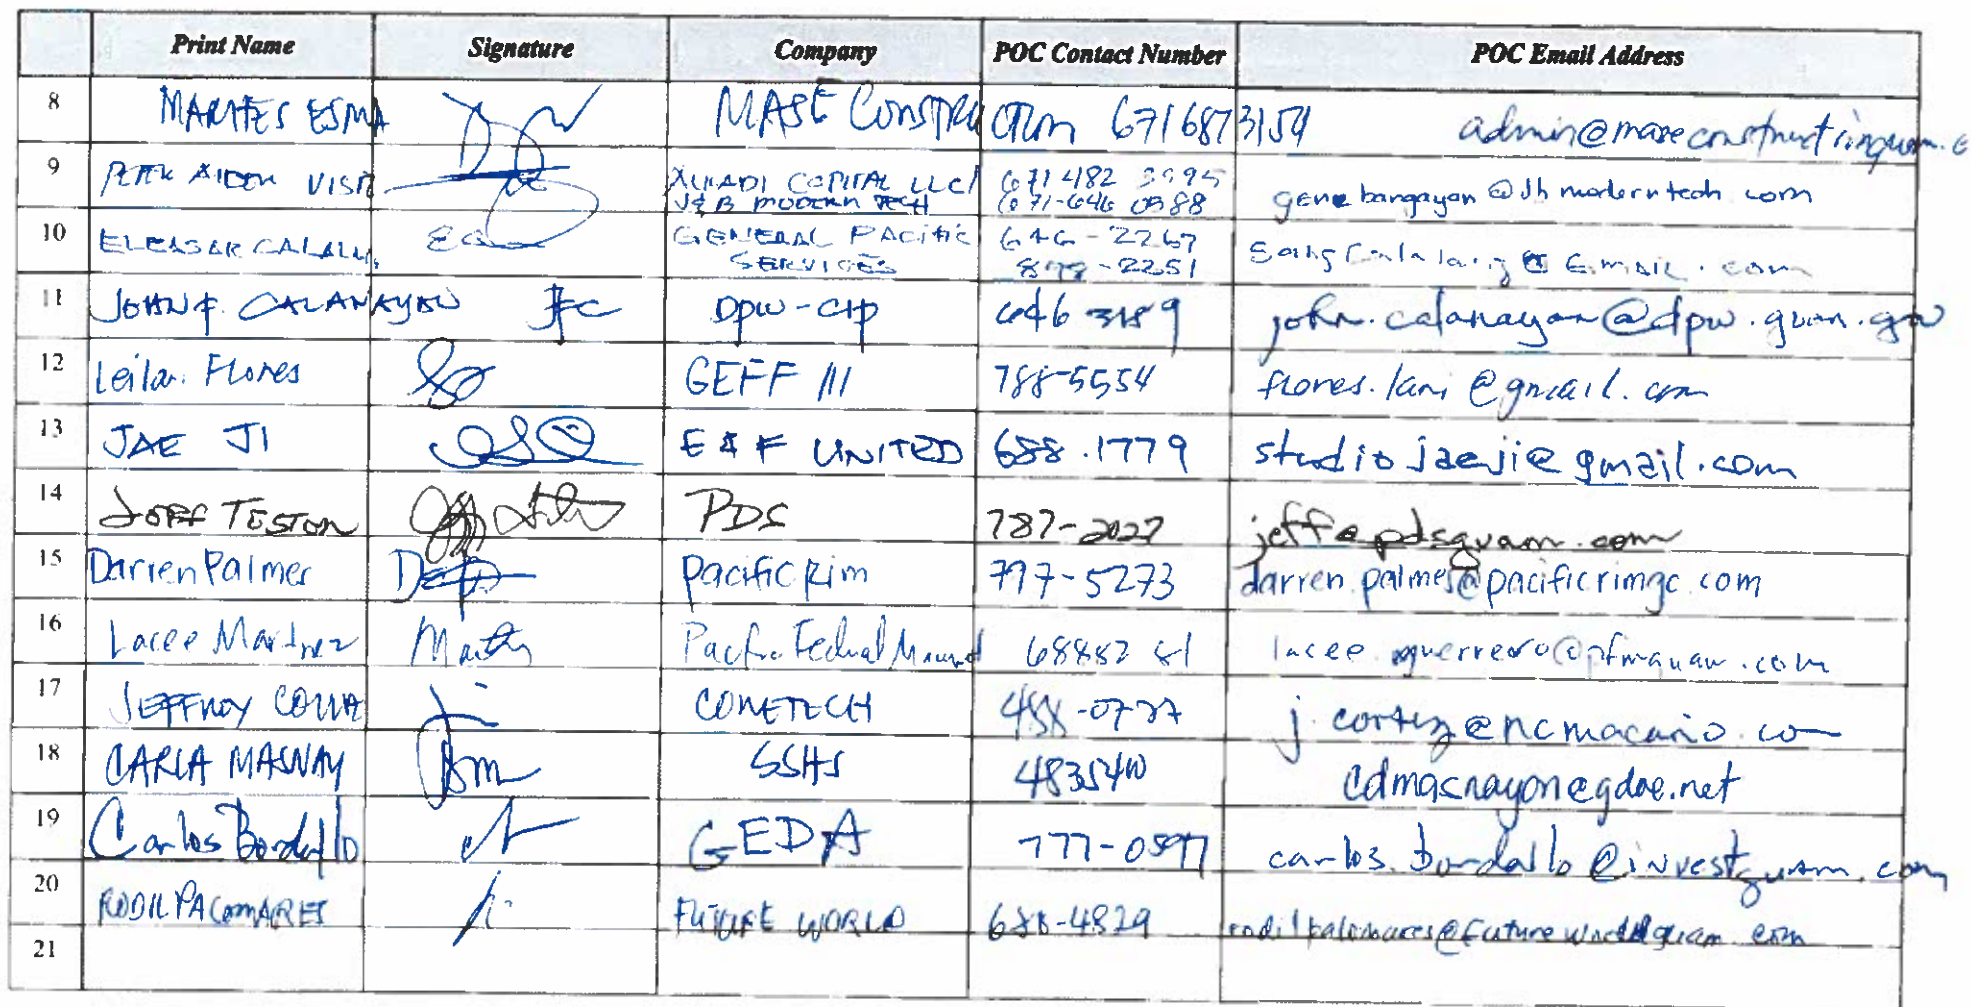 Print Name Signature Company POC Contact Number POC Email Address
8 MARITES ESMA MASE Construction 6716873154 admin@maseconstructionguam.c
9 PETER AIDEN VISTA XUIADI CAPITAL LLC/ 671 482 3995
J&B MODERN TECH 671-646 0588 genebangayan@jhmoderntech.com
10 ELEASAR CALALANG GENERAL PACIFIC 646-2267
SERVICES 898-2251 eangcalalang@gmail.com
11 JOHN F. CALANAYAN JFC DPW-CIP 646 3189 john.calanayan@dpw.guam.gov
12 Leilani Flores GEFF III 788-5554 flores.lani@gmail.com
13 JAE JI E & F UNITED 688.1779 studiojaeji@gmail.com
14 JOFF TESTON PDS 787-2027 jeff@pdsguam.com
15 Darren Palmes Pacific Rim 797-5273 darren.palmes@pacificrimgc.com
16 Lacee Martinez Pacific Federal 68882 lacee.guerrero@pfmguam.com
17 JEFFREY COMETECH 488-0727 j.cortez@ncmacario.co
18 CARLA MASNAY SSHS 4835410 cdmasnayon@gdoe.net
19 Carlos Bordallo GEDA 777-0597 carlos.bordallo@investguam.com
20 RODIL PALOMARES FUTURE WORLD 688-4829 rodilpalomares@futureworldguam.com
21